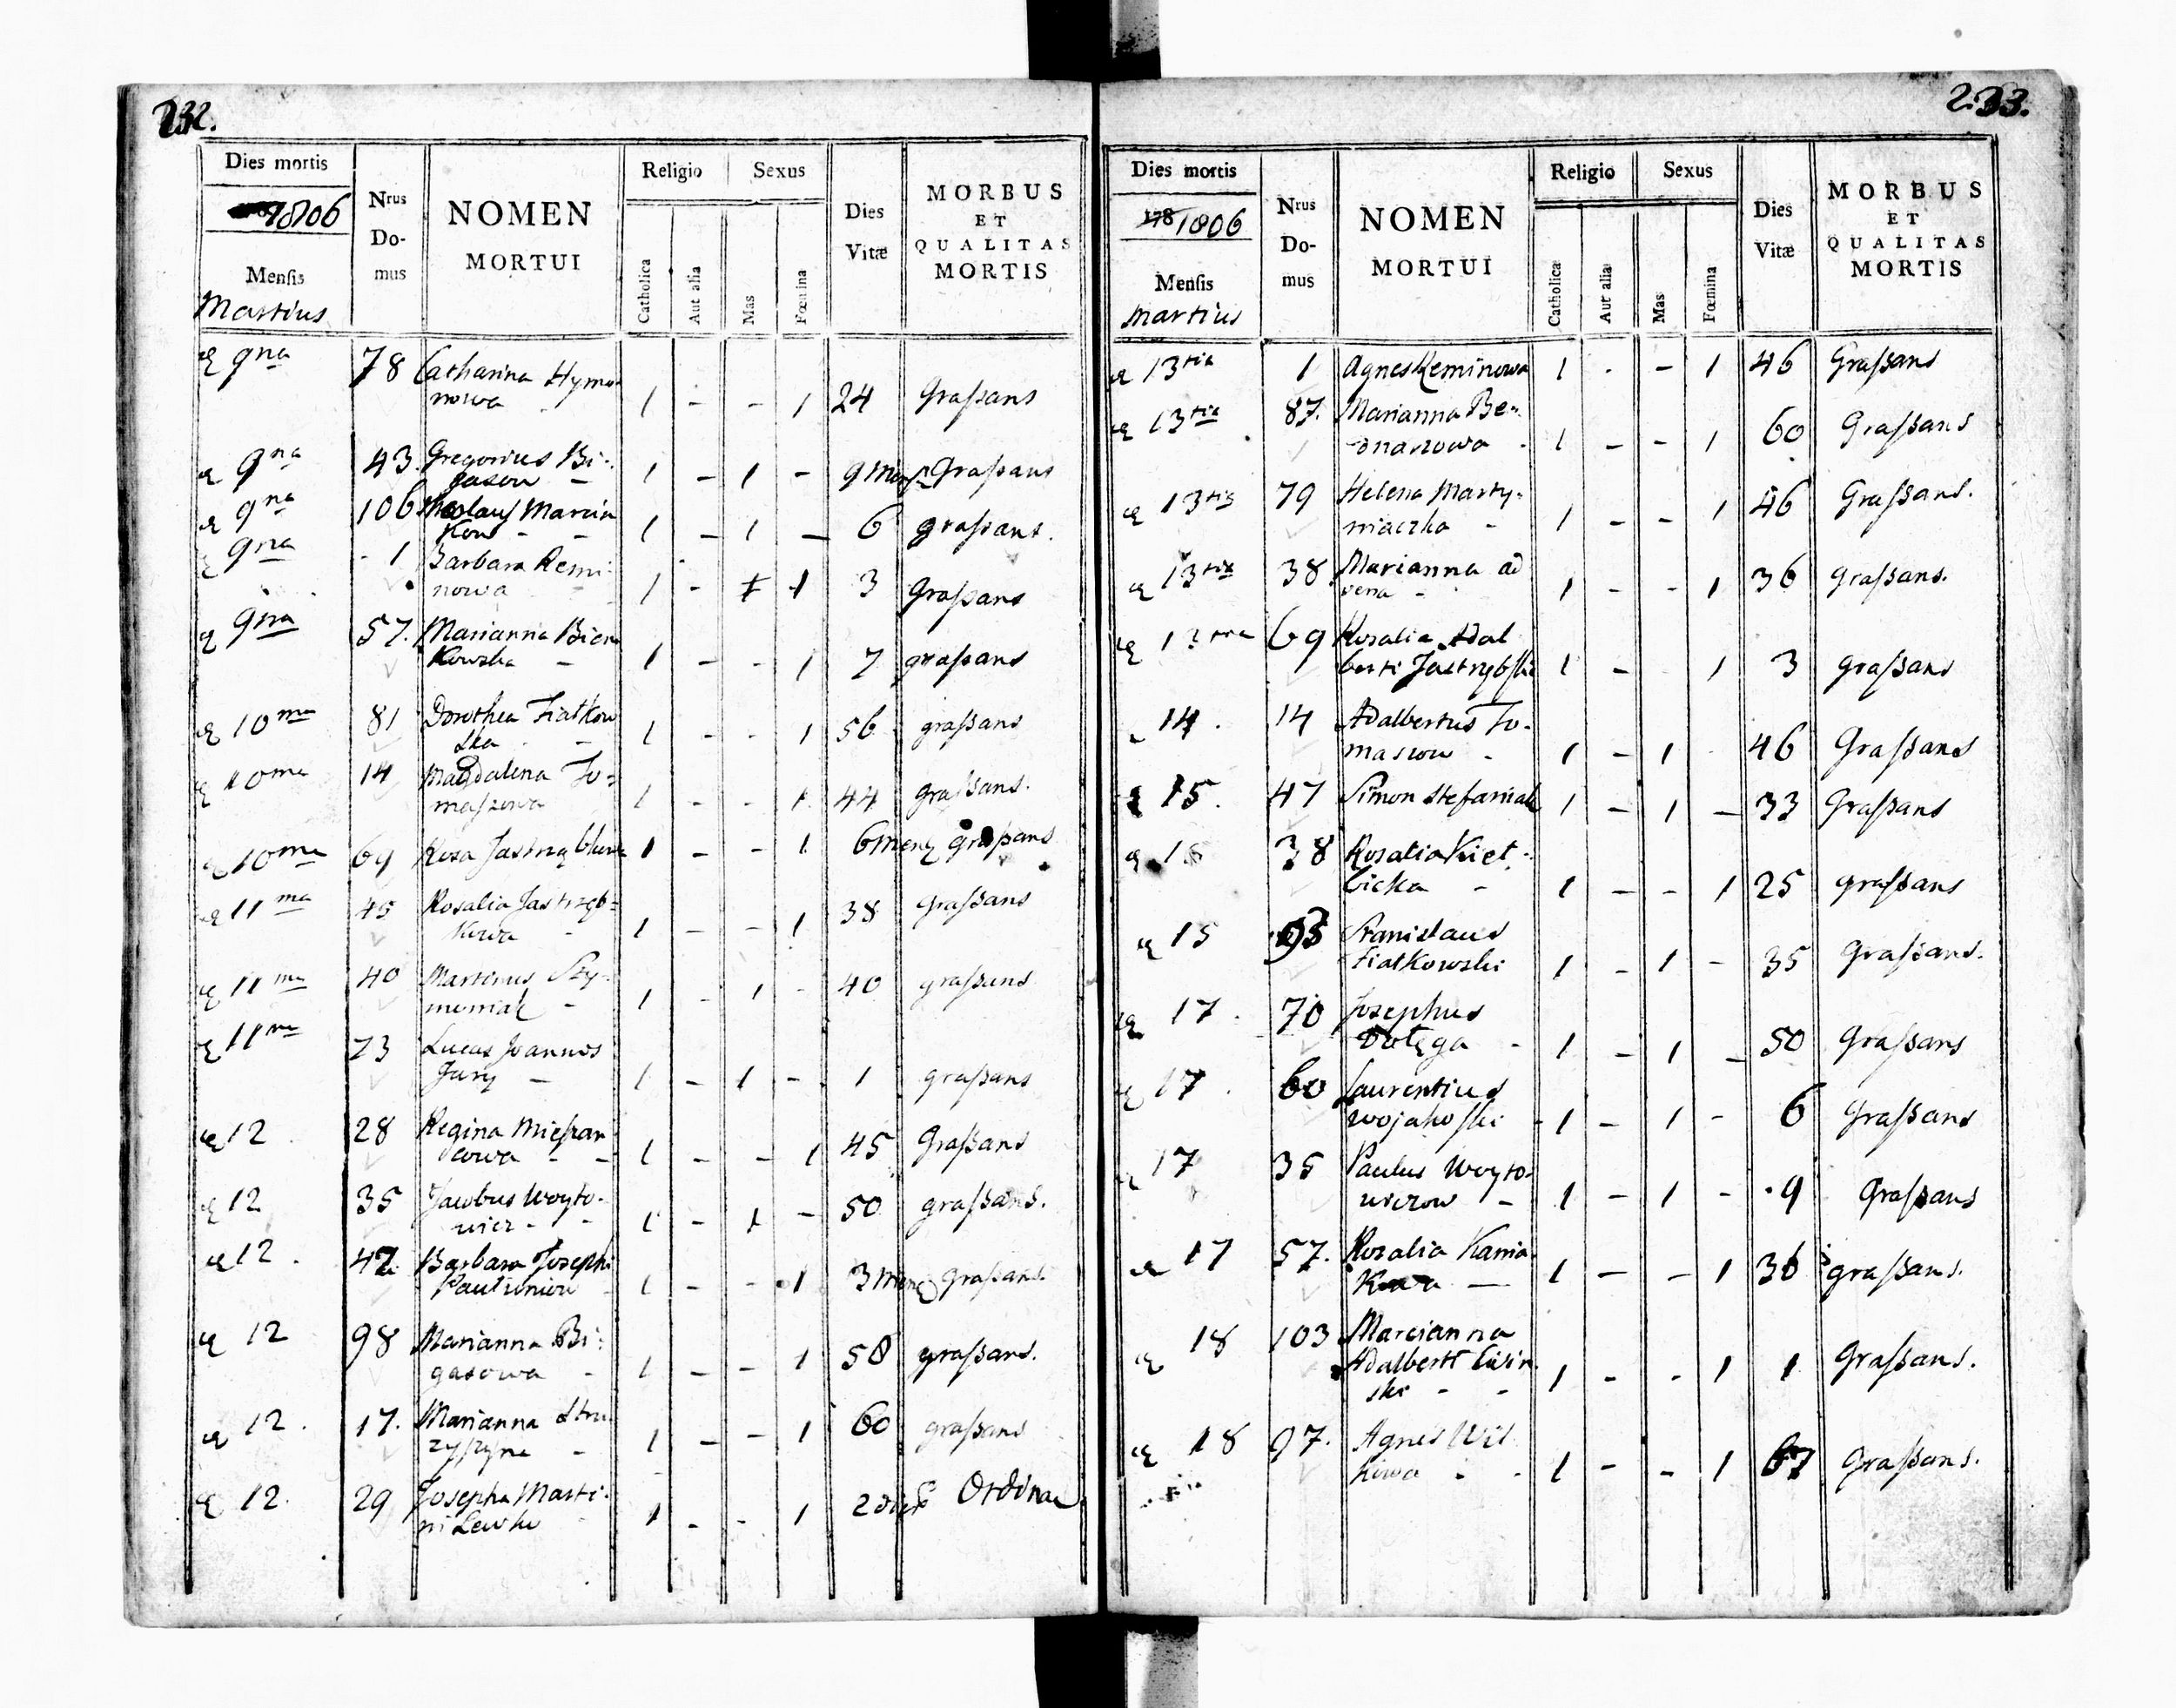 232.
Dies mortis
1806
Mensis
Martius
Nrus
Do-
mus
NOMEN
MORTUI
Religio
Catholica
Aut alia
Sexus
Mas
Fœmina
Dies
Vitæ
MORBUS
ET
QUALITAS
MORTIS
9na 78 Catharina Hyma
nowa 1 - - 1 24 Graſsans
9na 43. Gregorius Bi-
gasow - 1 - 1 - 9 Graſsans
9na 106 Marcin
Kow - - 1 - 1 - 6 graſsans.
9na 1 Barbara Remi
nowa 1 - 1 3 Graſsans
9na 57. Marianna
Kowska - 1 - - 1 7 graſsans
10ma 81 Dorothea Fiatkow
ska - 1 - - 1 56 graſsans
10ma 14 Magdalena To=
maſzowa 1 - - 1 44 graſsans.
10ma 69 Roza 1 - - 1 6 graſsans
11ma 45 Rosalia Jastrzęb=
kowa - 1 - - 1 38 Graſsans
11ma 40 Martinus Szy-
moniak - 1 - 1 - 40 graſsans
11ma 73 Lucas Joannis
Jury - 1 - 1 - 1 graſsans
12 28 Regina
cowa - - 1 - - 1 45 Graſsans
12 35 Jacobus Woyto-
wicz - - 1 - 1 - 50 graſsans.
12. 47 Barbara Josephi
1 - - 1 3 graſsans.
12 98 Marianna Bi-
gasowa - 1 - - 1 58 graſsans.
12. 17. Marianna
- 1 - - 1 60 graſsans
12. 29 Josepha Marti-
ni 1 - - 1 2 Ordina
233.
Dies mortis
178 1806
Mensis
Martius
Nrus
Do-
mus
NOMEN
MORTUI
Religio
Catholica
Aut alia
Sexus
Mas
Fœmina
Dies
Vitæ
MORBUS
ET
QUALITAS
MORTIS
13tia 1 Agnes Reminowa 1 - - 1 46 Graſsans
13tia 87. Marianna Be-
dnarzowa - 1 - - 1 60 Graſsans
13tia 79 Helena Marty-
niaczka - 1 - - 1 46 Graſsans.
13tia 38 Marianna ad
vena - 1 - - 1 36 graſsans.
13tia 69 Rozalia Adal
berti 1 - 1 3 graſsans
14. 14 Adalbertus To-
maszow - 1 - 1 46 Graſsans
15. 47 Simon Stefaniak 1 - 1 - 33 Graſsans
15 38 Rosalia Kieł-
bicka - 1 - - 1 25 graſsans
15 Stanislaus
Fiatkowski 1 - 1 - 35 Graſsans.
17. 70 Josephus
Dołęga - 1 - 1 - 50 Graſsans
17. 60 Laurentius
1 - 1 - 6 Graſsans
17 35 Paulus Woyto-
wiczow - 1 - 1 - 9 Graſsans
17 57. Rozalia Kania
- 1 - - 1 36 graſsans.
18 103 Marcianna
Adalberti
ski - - 1 - - 1 1 Graſsans.
18 97. Agnes Wil
kowa - - 1 - - 1 67 Graſsans.